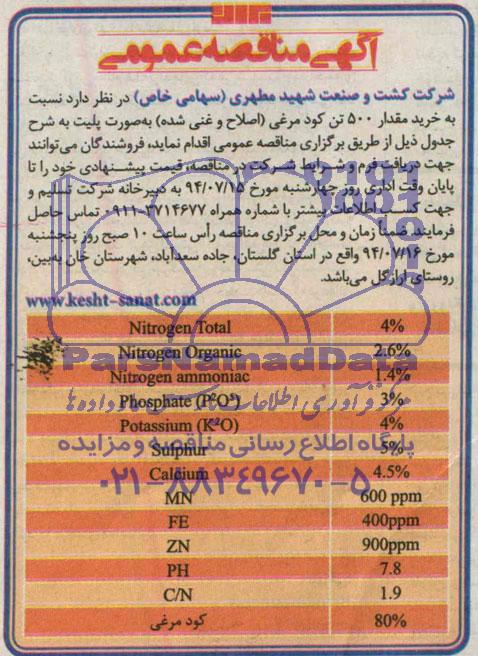 آگهی مناقصه عمومی
شرکت کشت و صنعت شهید مطهری (سهامی خاص) در نظر دارد نسبت
به خرید مقدار ۵۰۰ تن کود مرغی (اصلاح و غنی شده) به‌صورت پلیت به شرح
جدول ذیل از طریق برگزاری مناقصه عمومی اقدام نماید، فروشندگان می‌توانند
جهت دریافت فرم و شرایط شرکت در مناقصه، قیمت پیشنهادی خود را تا
پایان وقت اداری روز چهارشنبه مورخ ۹۴/۰۷/۱۵ به دبیرخانه شرکت تسلیم و
جهت کسب اطلاعات بیشتر با شماره همراه ۳۷۱۴۶۷۷-۰۹۱۱ تماس حاصل
فرمایند. ضمناً زمان و محل برگزاری مناقصه رأس ساعت ۱۰ صبح روز پنجشنبه
مورخ ۹۴/۰۷/۱۶ واقع در استان گلستان، جاده سعدآباد، شهرستان خان به‌بین،
روستای ارازگل می‌باشد.
www.kesht-sanat.com
Nitrogen Total 4%
Nitrogen Organic 2.6%
ParsNamadData
Nitrogen ammoniac 1.4%
Phosphate (P²O⁵) 3%
مرکز فرآوری اطلاعات پارس نماد داده ها
Potassium (K²O) 4%
پایگاه اطلاع رسانی مناقصه و مزایده
Sulphur 5%
Calcium 4.5%
۰۲۱-۸۸۳۴۹۶۷۰-۵
MN 600 ppm
FE 400ppm
ZN 900ppm
PH 7.8
C/N 1.9
کود مرغی 80%